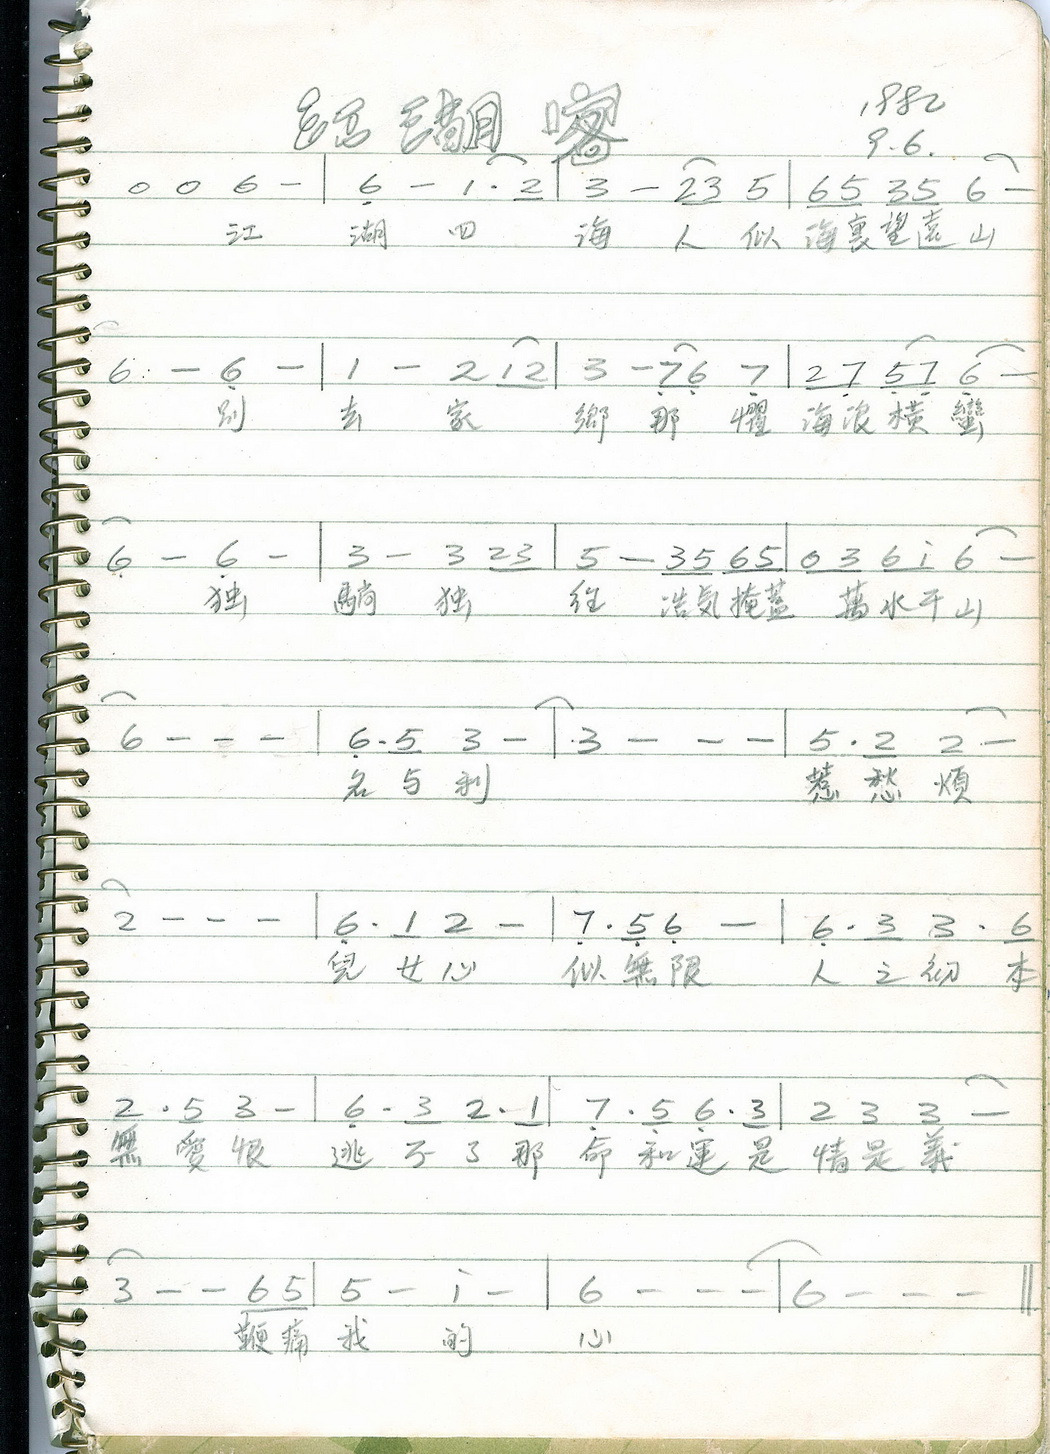 江湖客
1982
9.6.
0 0 6 — | 6 — 1·2 | 3 — 23 5 | 65 35 6 —
江 湖 四 海 人 似 海裏望遠山
6 — 6 — | 1 — 2 12 | 3 — 76 7 | 27 57 6 —
別 去 家 鄉 那 懼 海浪橫蠻
6 — 6 — | 3 — 3 23 | 5 — 35 65 | 03 6i 6 —
独 騎 独 往 浩気掩蓋 萬水千山
6 — — — | 6·5 3 — | 3 — — — | 5·2 2 —
名 与 利 惹 愁 煩
2 — — — | 6·1 2 — | 7·56 — | 6·3 3·6
兒 女 心 似 無限 人 之 初 本
2·5 3 — | 6·3 2·1 | 7·5 6·3 | 2 3 3 —
無 愛 恨 逃 不 了 那 命 和 運 是 情 是 義
3 — — 65 | 5 — i — | 6 — — — | 6 — — — ‖
鞭痛 我 的 心